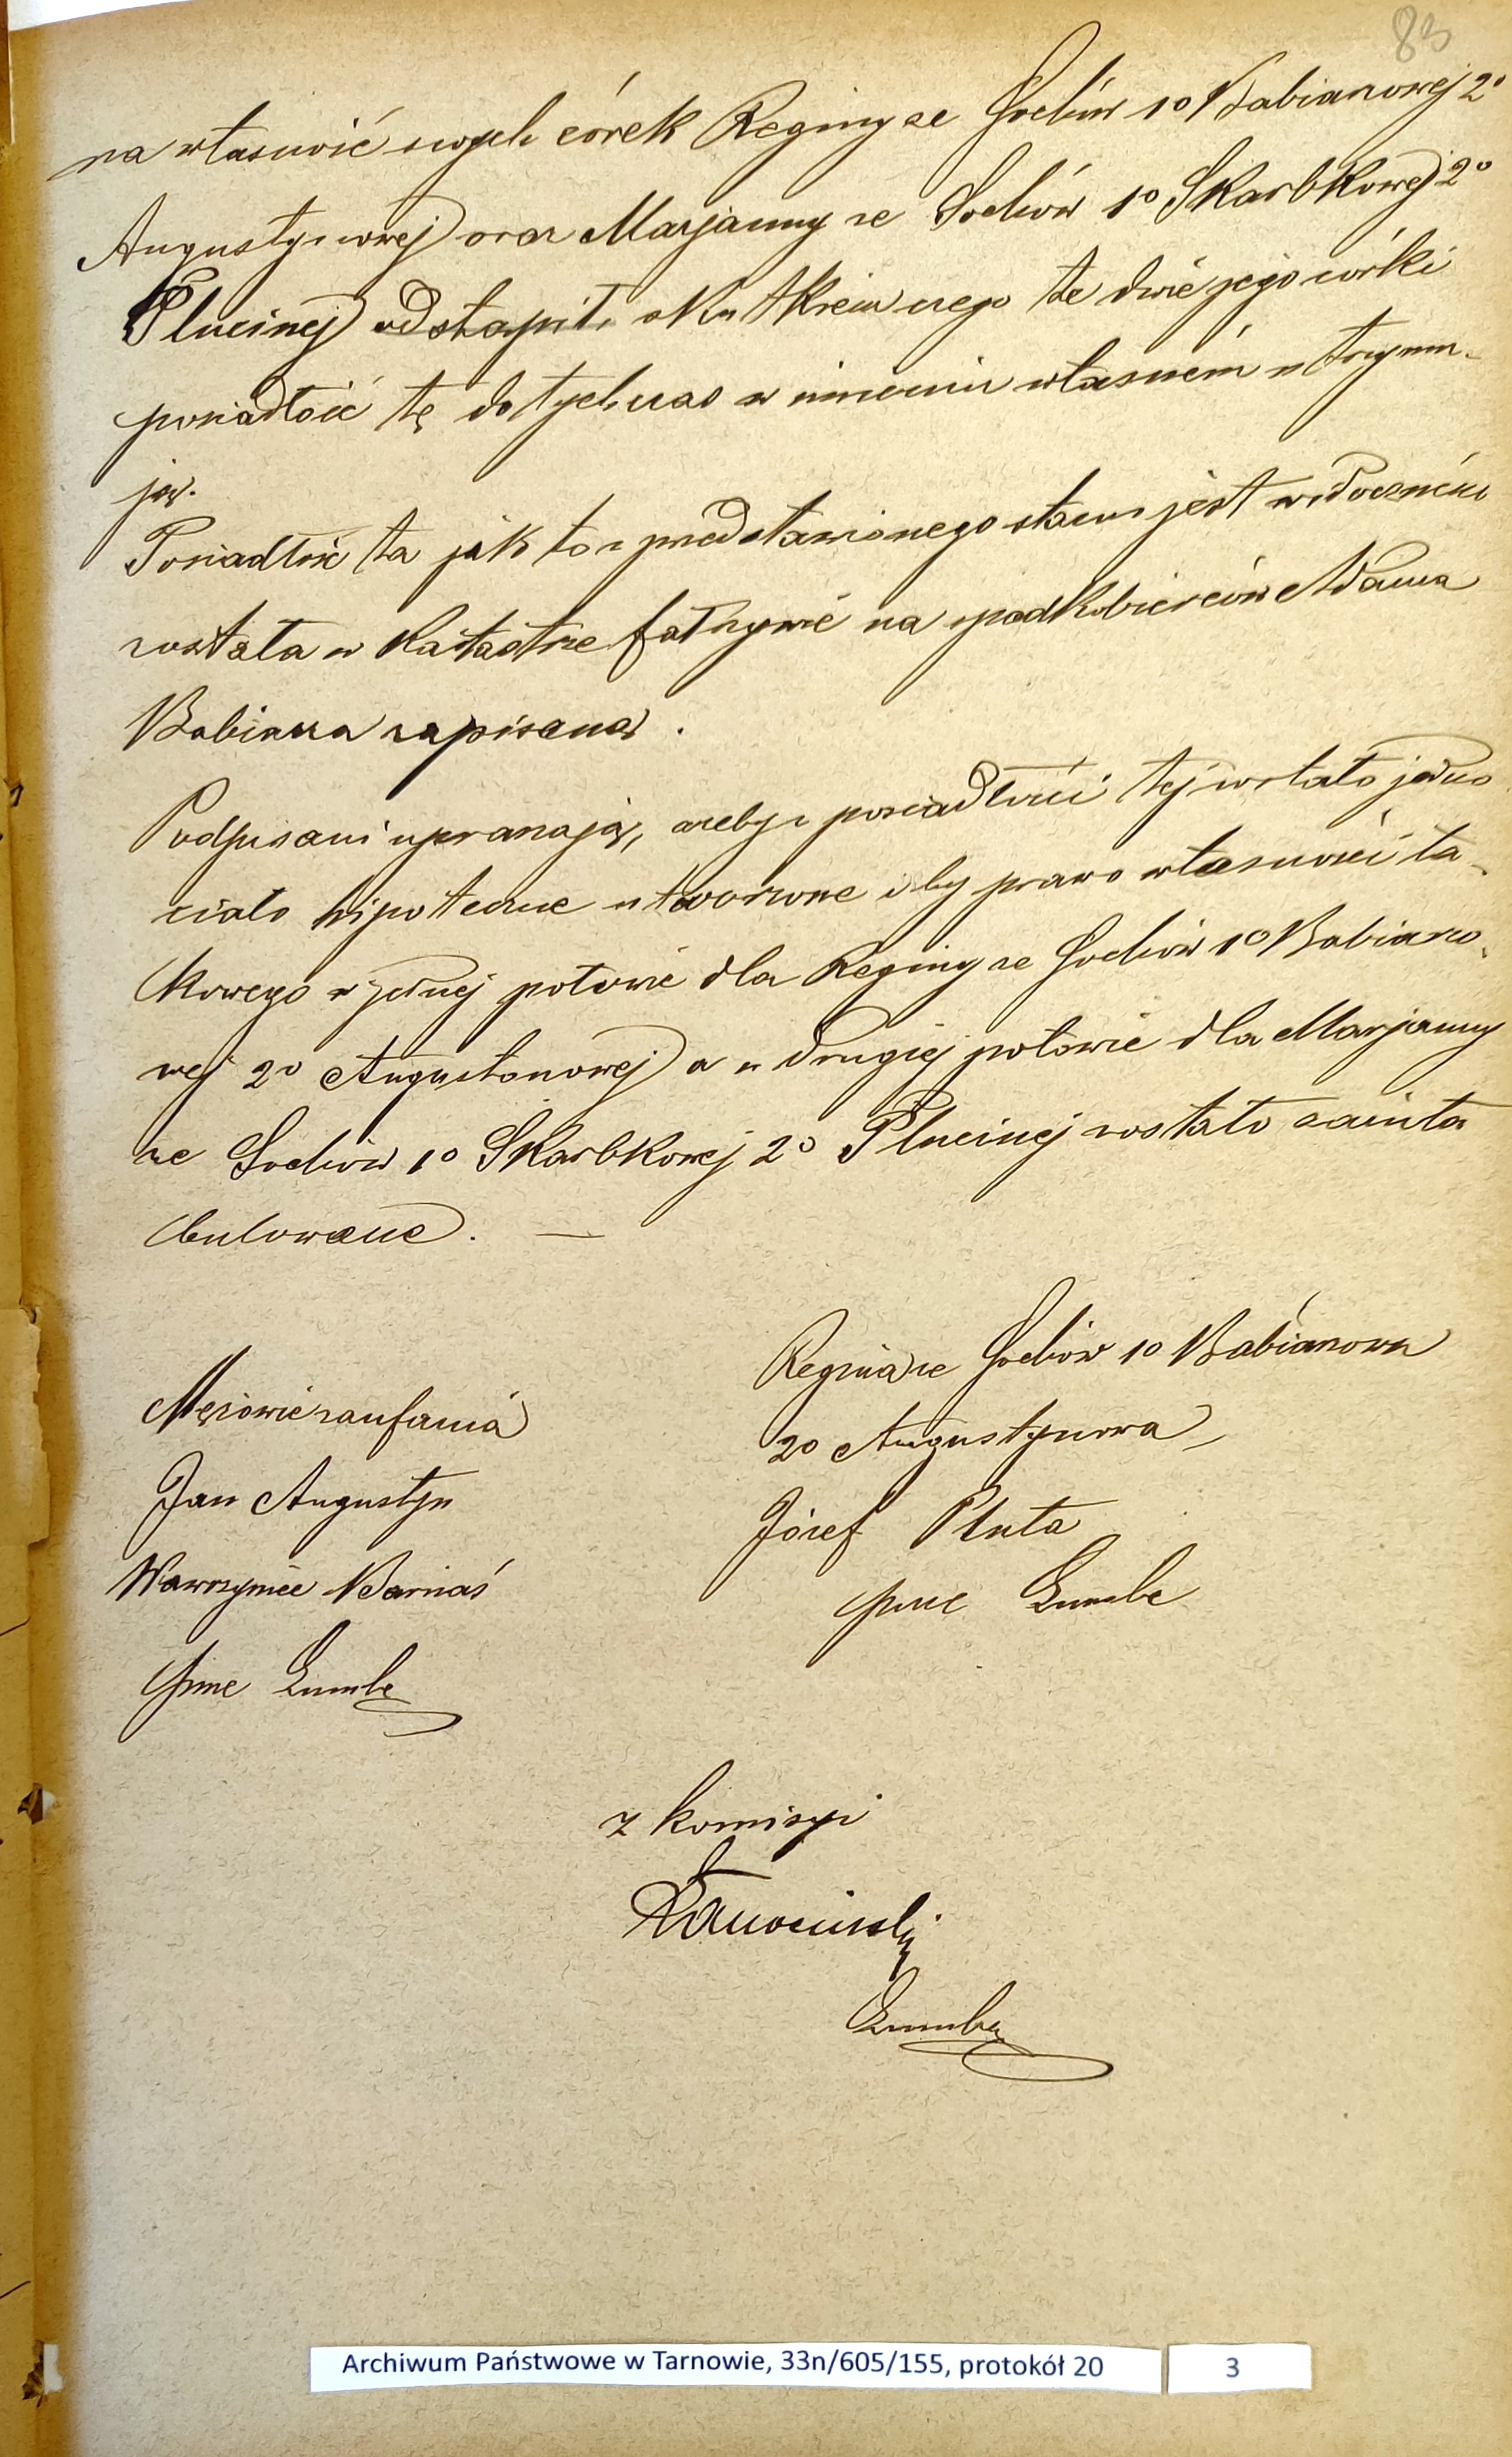 83
na własność swych córek Reginy ze Sochów 1o Babiarzowej 2o
Augustynowej oraz Marjanny ze Sochów 1o Skarbkowej 2o
Plucinej odstąpił, skutkiem czego te dwie jego córki
posiadłość tę dotychczas w imieniu własnem utrzymu-
ją.
Posiadłość ta jak to z przedstawionego stanu jest widocznem
została w katastrze fałszywie na spadkobierców Adama
Babiarza zapisaną.
Podpisani upraszają, ażeby z posiadłości tej zostało jedno
ciało hipoteczne utworzone i by prawo własności ta-
kowego w jednej połowie dla Reginy ze Sochów 1o Babiarzo-
wej 2o Augustonowej a w drugiej połowie dla Marjanny
ze Sochów 1o Skarbkowej 2o Plucinej zostało zainta
bulowane. —
Regina ze Sochów 1o Babiarzowa
2o Augustynowa
Józef Pluta
Mężowie zaufania
Jan Augustyn
Wawrzyniec Barnaś
z komisyi
Archiwum Państwowe w Tarnowie, 33n/605/155, protokół 20
3